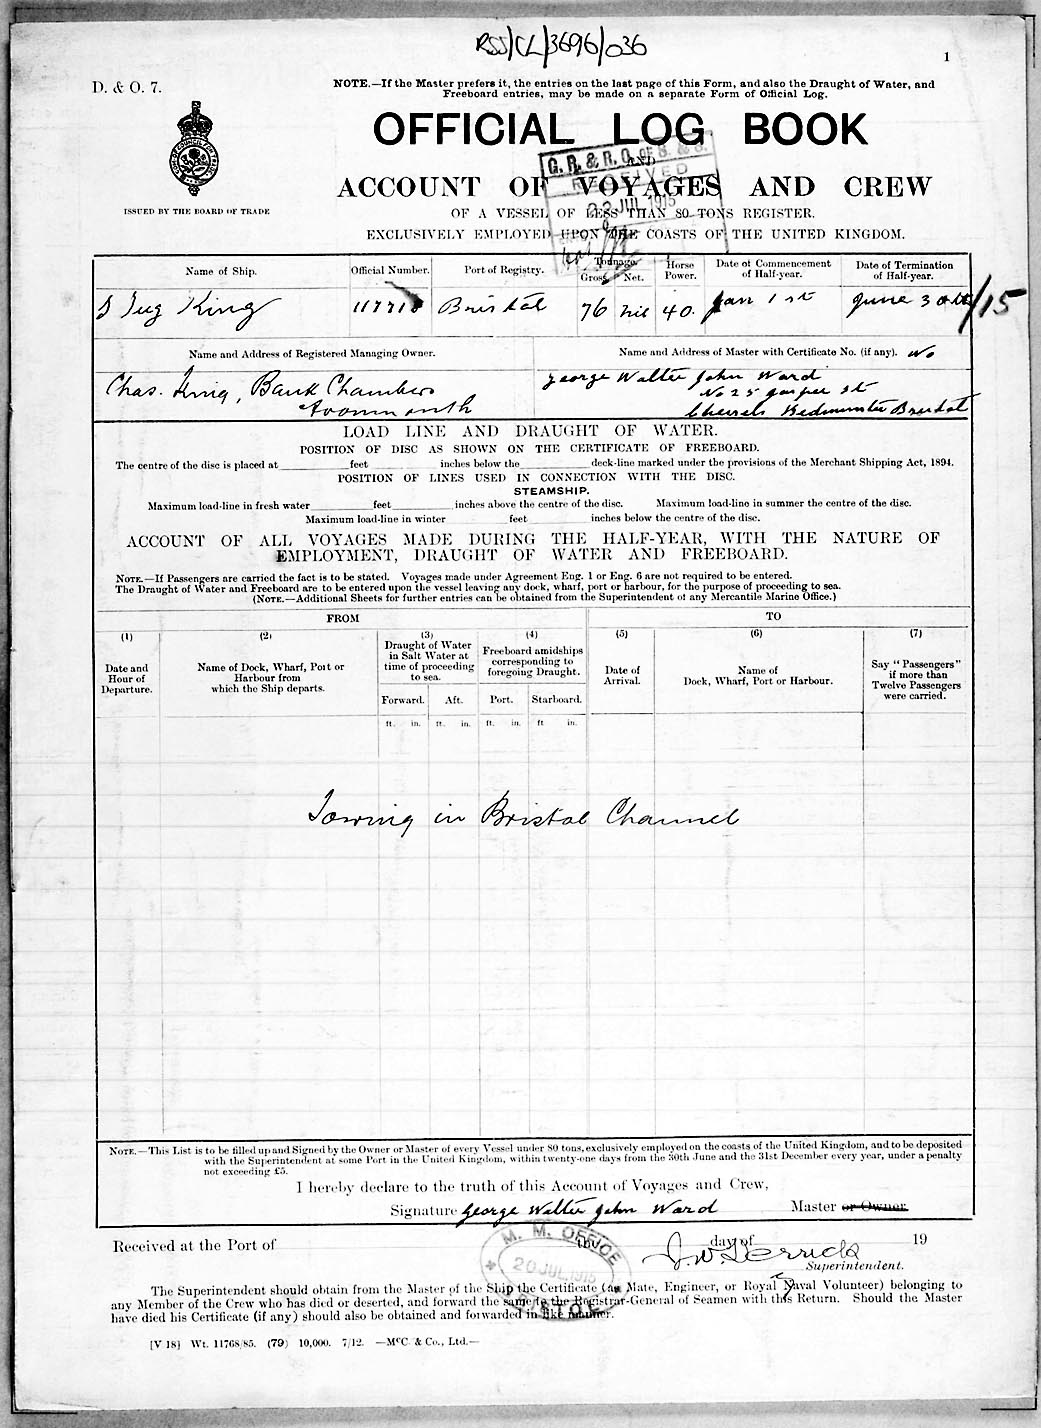 RSS/CL/3696/036
1
D. & O. 7.
NOTE.—If the Master prefers it, the entries on the last page of this Form, and also the Draught of Water, and
Freeboard entries, may be made on a separate Form of Official Log.
OFFICIAL LOG BOOK
AND
ACCOUNT OF VOYAGES AND CREW
ISSUED BY THE BOARD OF TRADE
OF A VESSEL OF LESS THAN 80 TONS REGISTER.
EXCLUSIVELY EMPLOYED UPON THE COASTS OF THE UNITED KINGDOM.
G. R. & R. O. OF S. & S.
RECEIVED
22 JUL 1915
Name of Ship. Official Number. Port of Registry. Tonnage. Gross Net. Horse Power. Date of Commencement of Half-year. Date of Termination of Half-year.
S Tug King 117718 Bristol 76 nil 40. Jan 1st June 30th/15
Name and Address of Registered Managing Owner. Name and Address of Master with Certificate No. (if any). No
Chas. King, Bank Chambers
Avonmouth
George Walter John Ward
No 25 Jasper St
Bedminster Bristol
LOAD LINE AND DRAUGHT OF WATER.
POSITION OF DISC AS SHOWN ON THE CERTIFICATE OF FREEBOARD.
The centre of the disc is placed at feet inches below the deck-line marked under the provisions of the Merchant Shipping Act, 1894.
POSITION OF LINES USED IN CONNECTION WITH THE DISC.
STEAMSHIP.
Maximum load-line in fresh water feet inches above the centre of the disc. Maximum load-line in summer the centre of the disc.
Maximum load-line in winter feet inches below the centre of the disc.
ACCOUNT OF ALL VOYAGES MADE DURING THE HALF-YEAR, WITH THE NATURE OF
EMPLOYMENT, DRAUGHT OF WATER AND FREEBOARD.
NOTE.—If Passengers are carried the fact is to be stated. Voyages made under Agreement Eng. 1 or Eng. 6 are not required to be entered.
The Draught of Water and Freeboard are to be entered upon the vessel leaving any dock, wharf, port or harbour, for the purpose of proceeding to sea.
(NOTE.—Additional Sheets for further entries can be obtained from the Superintendent of any Mercantile Marine Office.)
FROM TO
(1) Date and Hour of Departure.
(2) Name of Dock, Wharf, Port or Harbour from which the Ship departs.
(3) Draught of Water in Salt Water at time of proceeding to sea.
Forward. Aft.
(4) Freeboard amidships corresponding to foregoing Draught.
Port. Starboard.
(5) Date of Arrival.
(6) Name of Dock, Wharf, Port or Harbour.
(7) Say "Passengers" if more than Twelve Passengers were carried.
ft. in. ft. in. ft. in. ft in.
Towing in Bristol Channel
NOTE.—This List is to be filled up and Signed by the Owner or Master of every Vessel under 80 tons, exclusively employed on the coasts of the United Kingdom, and to be deposited
with the Superintendent at some Port in the United Kingdom, within twenty-one days from the 30th June and the 31st December every year, under a penalty
not exceeding £5.
I hereby declare to the truth of this Account of Voyages and Crew,
Signature George Walter John Ward Master or Owner.
Received at the Port of the day of 19
M. M. OFFICE
20 JUL 1915
BRISTOL
J. W. Derrick
Superintendent.
The Superintendent should obtain from the Master of the Ship the Certificate (as Mate, Engineer, or Royal Naval Volunteer) belonging to
any Member of the Crew who has died or deserted, and forward the same to the Registrar-General of Seamen with this Return. Should the Master
have died his Certificate (if any) should also be obtained and forwarded in like manner.
[V 18] Wt. 11768/85. (79) 10,000. 7/12. —McC. & Co., Ltd.—